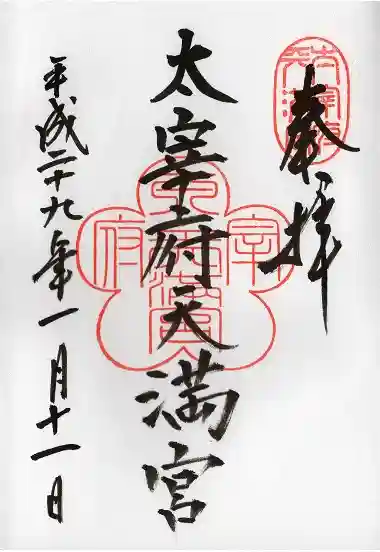 奉拝
太宰府天満宮
平成二十九年一月十一日